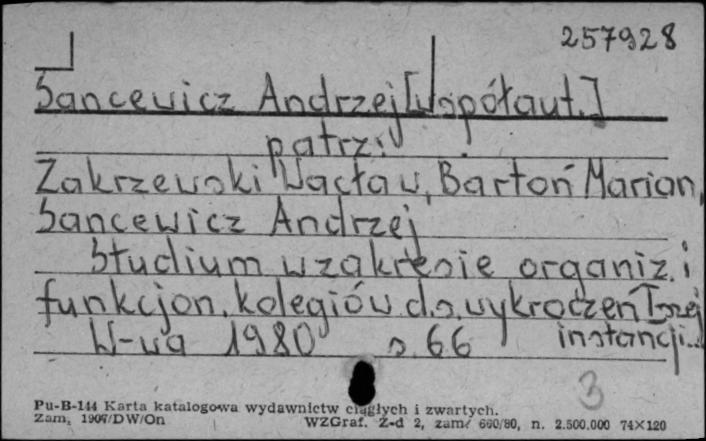 257928
Sancewicz Andrzej [współaut.]
patrz:
Zakrzewski Wacław, Bartoń Marian,
Sancewicz Andrzej
Studium w zakresie organiz. i
funkcjon. kolegiów d.s. wykroczeń I-szej
W-wa 1980 s. 66 instancji...
3
Pu-B-144 Karta katalogowa wydawnictw ciągłych i zwartych.
Zam. 1907/DW/On WZGraf. Z-d 2, zam. 660/80, n. 2.500.000 74×120